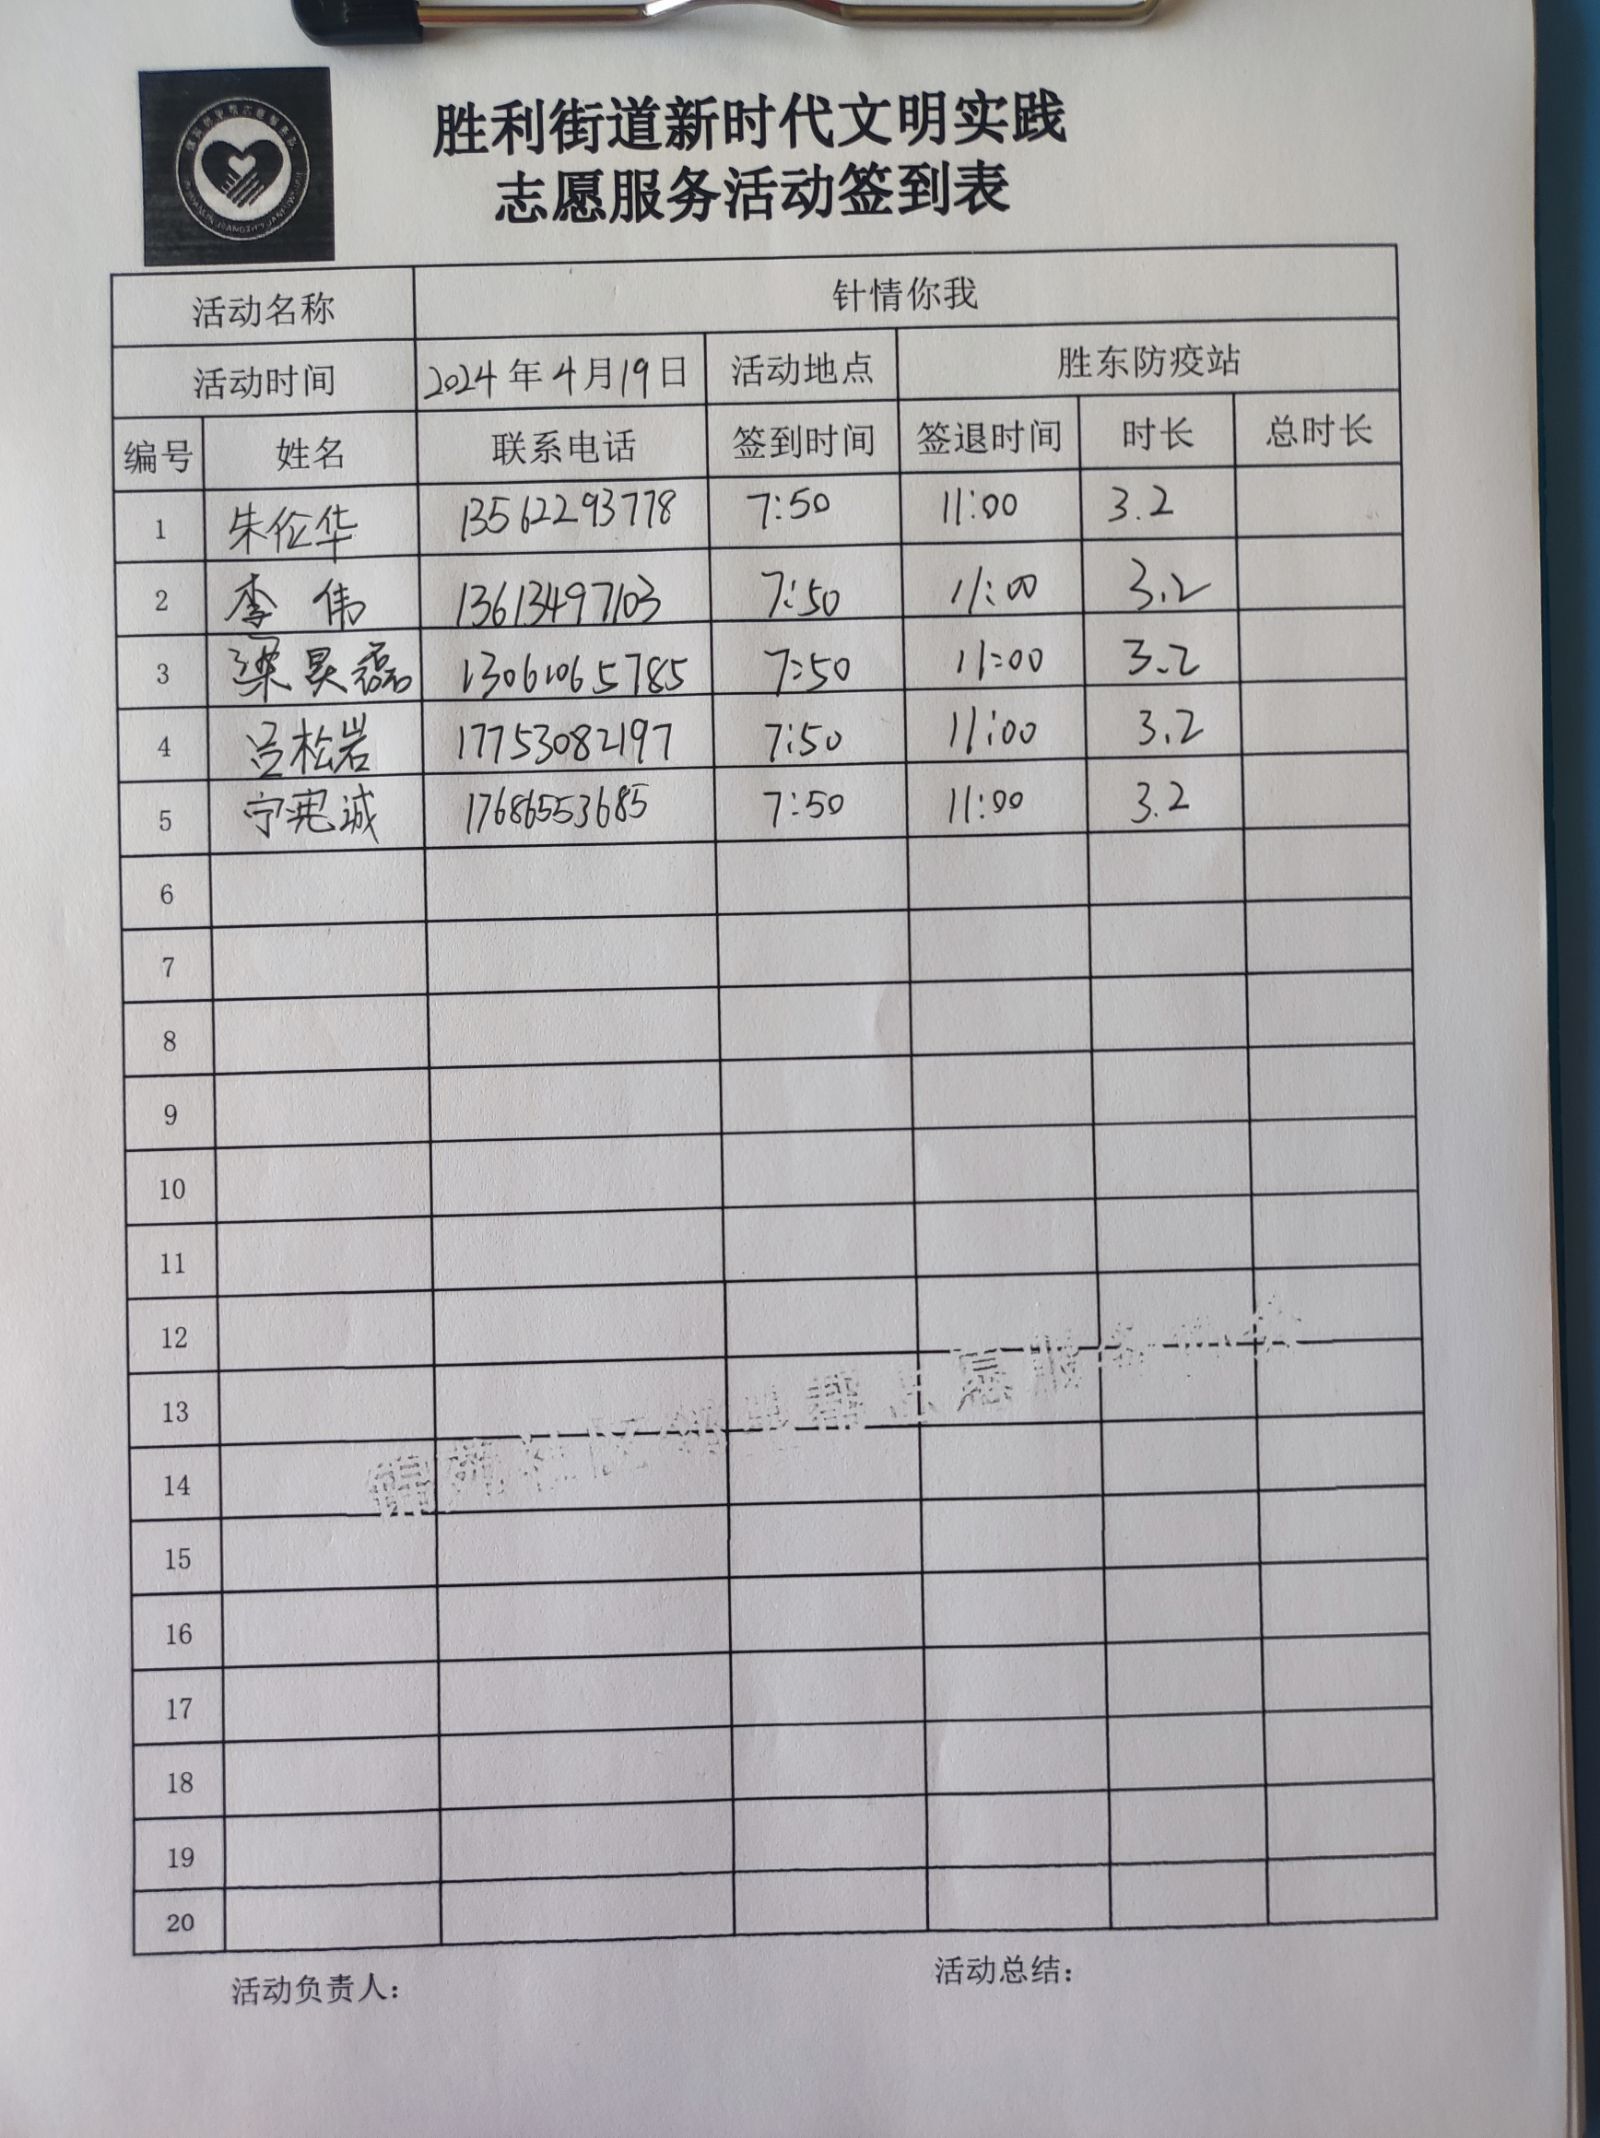 胜利街道新时代文明实践
志愿服务活动签到表
活动名称 针情你我
活动时间 2024年4月19日 活动地点 胜东防疫站
编号 姓名 联系电话 签到时间 签退时间 时长 总时长
1 朱伦华 13562293778 7:50 11:00 3.2
2 李伟 13613497103 7:50 11:00 3.2
3 梁昊磊 13061065785 7:50 11:00 3.2
4 吕松岩 17753082197 7:50 11:00 3.2
5 宁宪诚 17686553685 7:50 11:00 3.2
6
7
8
9
10
11
12
13
14
15
16
17
18
19
20
活动负责人： 活动总结：